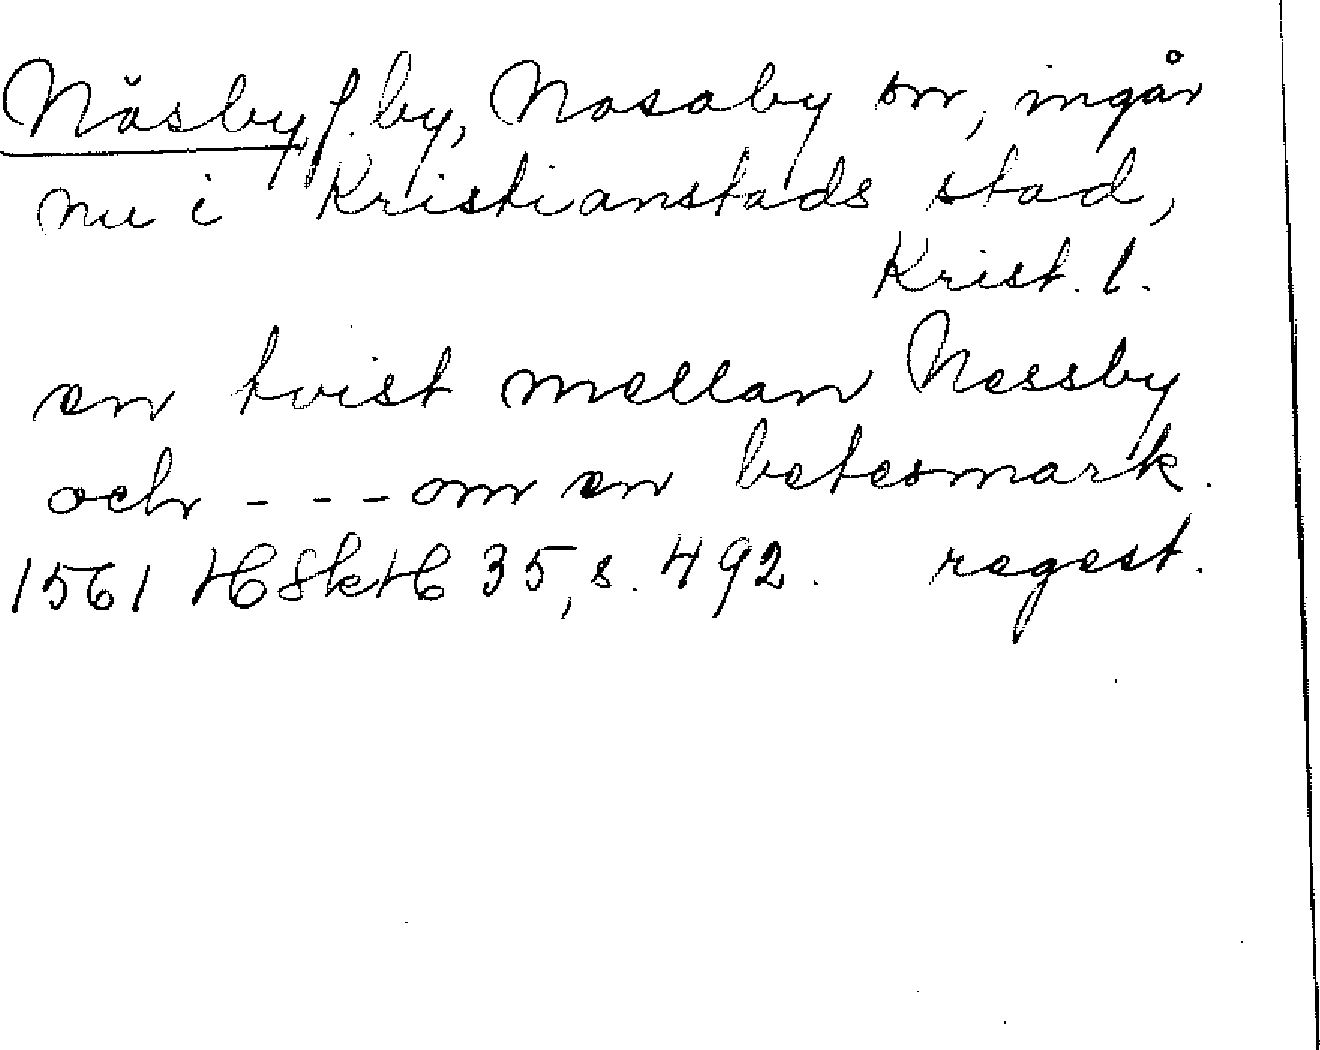 Näsby, f. by, Nosaby sn, ingår
nu i Kristianstads stad,
Krist. l.
en tvist mellan Nessby
och - - - om en betesmark.
1561 HSkH 35, s. 492. regest.